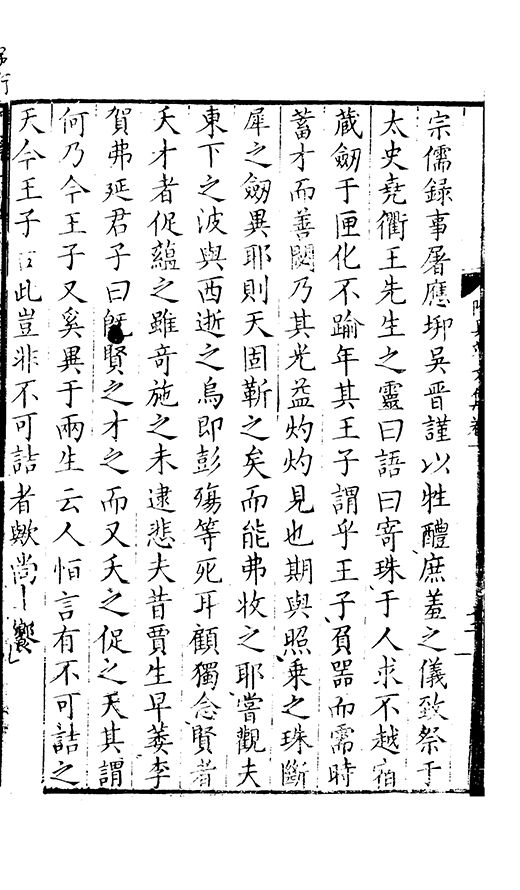 宗儒録事屠應埈吴晋謹以牲醴庶羞之儀致祭于
太史堯衢王先生之靈曰語曰寄珠于人求不越宿
蔵劒于匣化不踰年其王子謂乎王子負噐而需時
蓄才而善閟乃其光益灼灼見也期與照乗之珠斷
犀之劒異耶則天固靳之矣而能弗收之耶嘗觀夫
東下之波與西逝之烏即彭殤等死耳顧獨念賢者
夭才者促蘊之雖竒施之未逮悲夫昔賈生早萎李
賀弗延君子曰旣賢之才之而又夭之促之天其謂
何乃今王子又奚異于兩生云人恒言有不可詰之
天今王子 此豈非不可詰者歟尚 饗